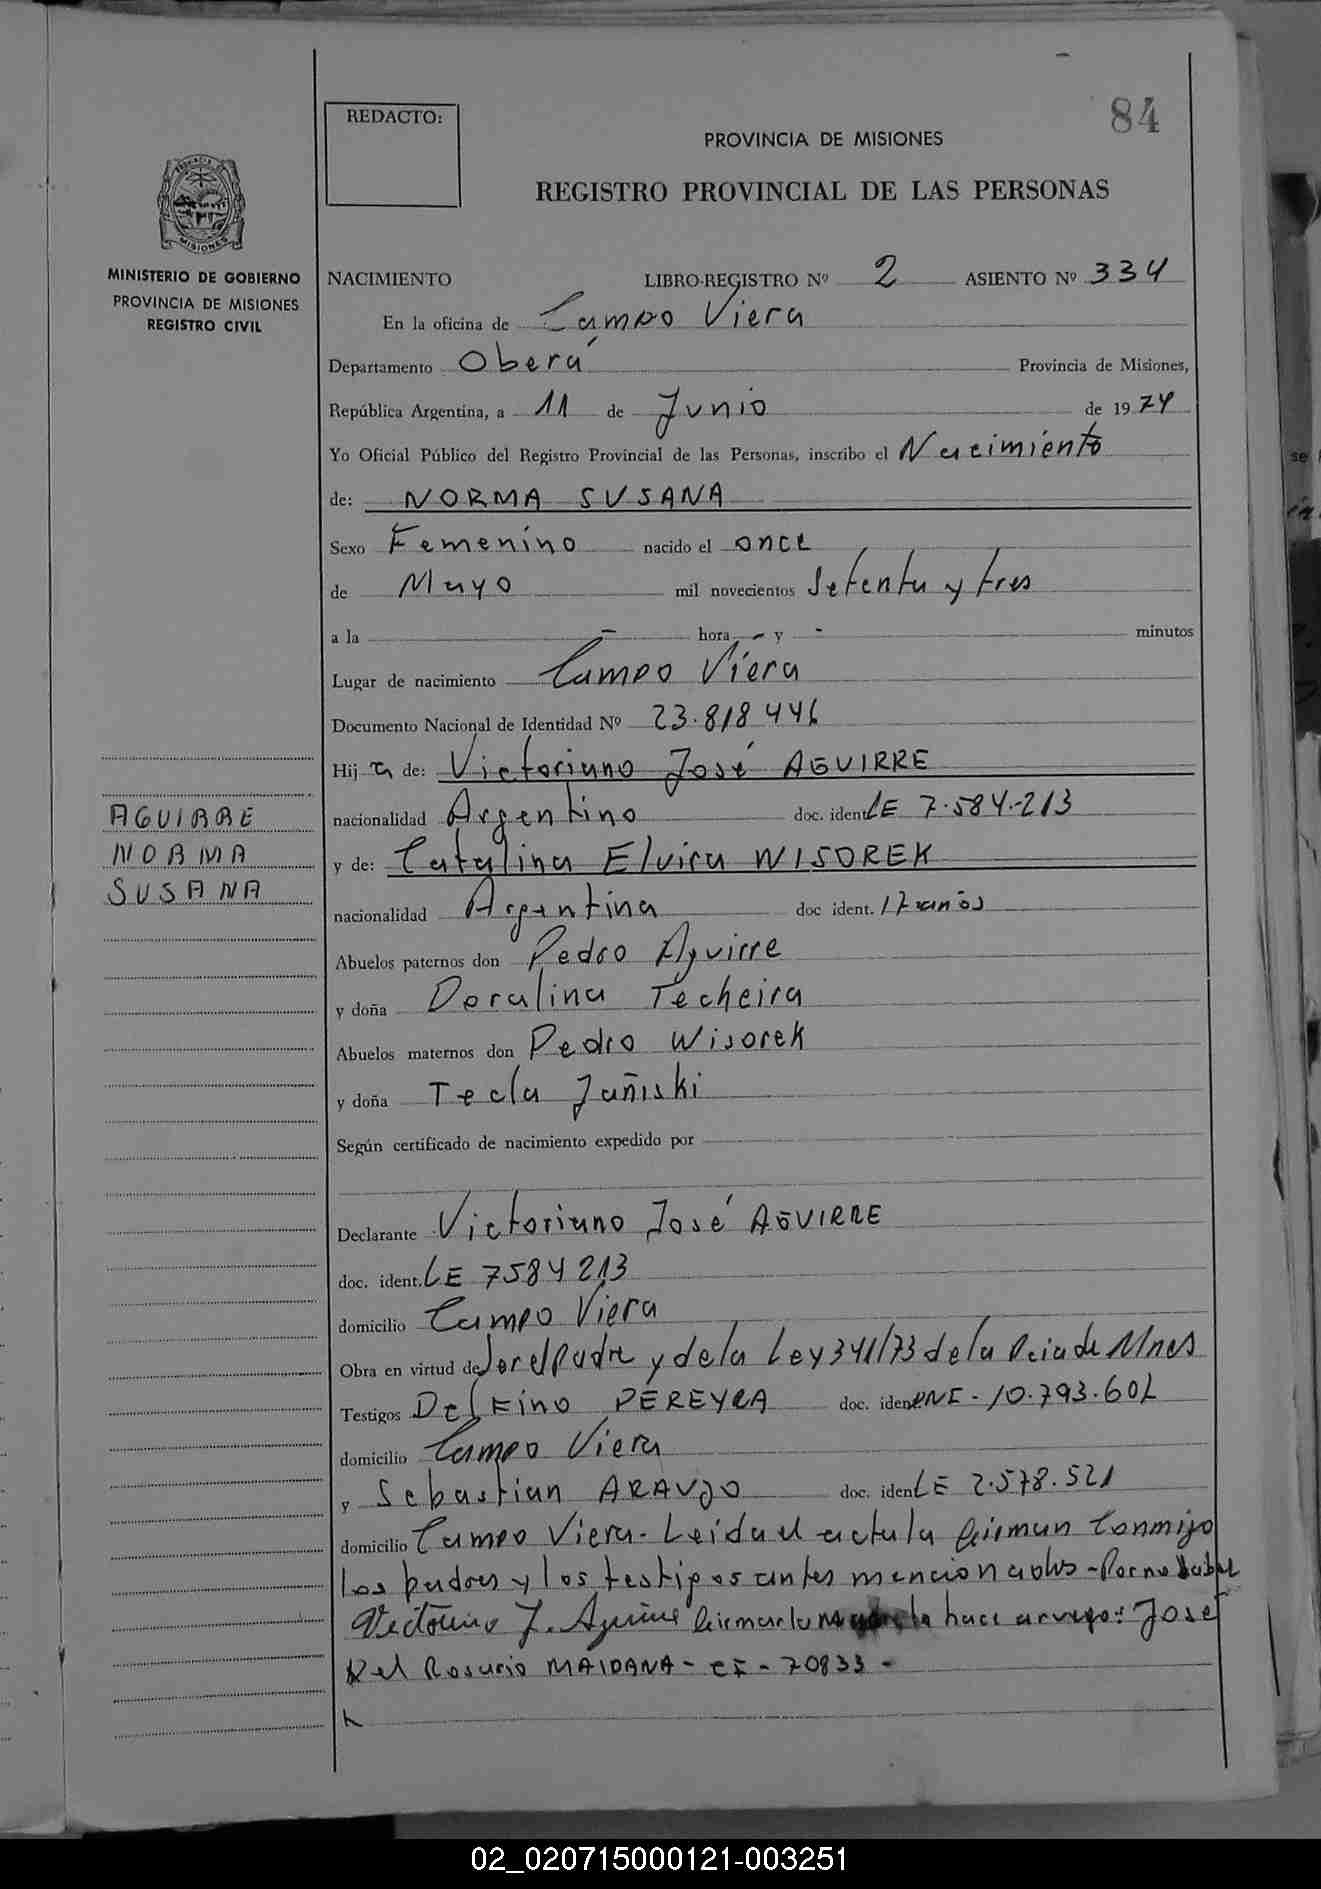 84
REDACTO:
PROVINCIA DE MISIONES
REGISTRO PROVINCIAL DE LAS PERSONAS
MISIONES
MINISTERIO DE GOBIERNO
PROVINCIA DE MISIONES
REGISTRO CIVIL
NACIMIENTO LIBRO-REGISTRO Nº 2 ASIENTO Nº 334
En la oficina de Campo Viera
Departamento Oberá Provincia de Misiones,
República Argentina, a 11 de Junio de 1974
Yo Oficial Público del Registro Provincial de las Personas, inscribo el Nacimiento
de: NORMA SUSANA
Sexo Femenino nacido el once
de Mayo mil novecientos Setenta y tres
a la - hora - y - minutos
Lugar de nacimiento Campo Viera
Documento Nacional de Identidad Nº 23.818446
Hij a de: Victoriano José AGUIRRE
nacionalidad Argentino doc. ident. LE 7.584.213
y de: Catalina Elvira WISOREK
nacionalidad Argentina doc ident. 17 años
Abuelos paternos don Pedro Aguirre
y doña Doralina Techeira
Abuelos maternos don Pedro Wisorek
y doña Tecla Jañiski
Según certificado de nacimiento expedido por
Declarante Victoriano José AGUIRRE
doc. ident. LE 7584213
domicilio Campo Viera
Obra en virtud de Ser el Padre y de la Ley 341/73 de la Pcia de Mnes
Testigos Delfino PEREYRA doc. ident. DNI - 10.793.60
domicilio Campo Viera
y Sebastian ARAUJO doc. ident. LE 2.578.521
domicilio Campo Viera - Leida el acta la firman Conmigo
los padres y los testigos antes mencionados - Por no saber
Victorino J. Aguirre firmar la hace a ruego: José
Del Rosario MAIDANA - CI - 70833 -
AGUIRRE
NORMA
SUSANA
02_020715000121-003251